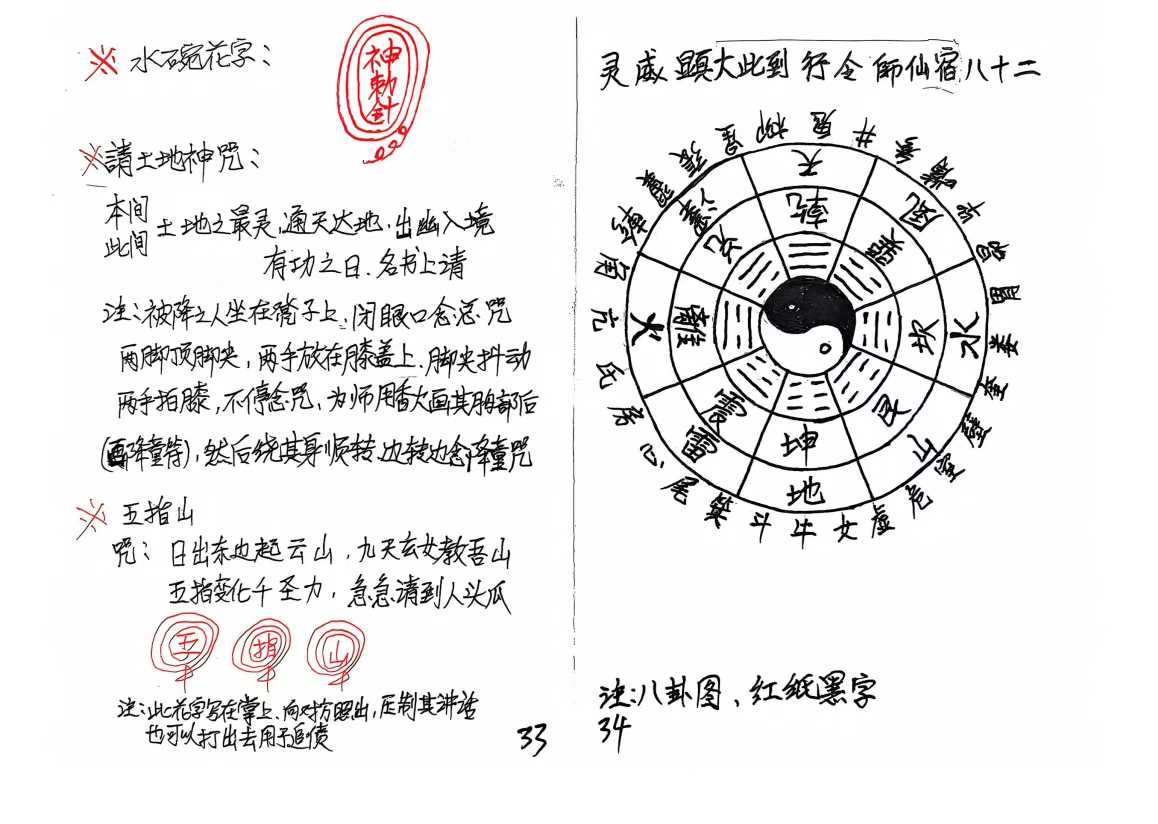 ※ 水碗花字：
神勅令
※請土地神咒：
本间
此间 土地之最灵，通天达地，出幽入境
有功之日、名书上请
注：被降之人坐在凳子上、闭眼口念总咒
两脚顶脚尖，两手放在膝盖上、脚尖抖动
两手拍膝，不停念咒、为师用香火画其胸部后
(画降童符)，然后绕其身顺转、边转边念降童咒
※ 五指山
咒：日出东边起云山，九天玄女教吾山
五指变化千圣力，急急请到人头瓜
五 指 山
注：此花字写在掌上、向对方照出，压制其讲话
也可以打出去用于追债
33
灵威顕大此到行令師仙宿八十二
井 鬼 柳 星 張 翼 軫 角 亢 氐 房 心 尾 箕 斗 牛 女 虚 危 室 壁 奎 娄 胃 昴 毕 觜 参
天 風 水 山 地 雷 火
乾 巽 坎 艮 坤 震 離 兑
注：八卦图、红纸黑字
34